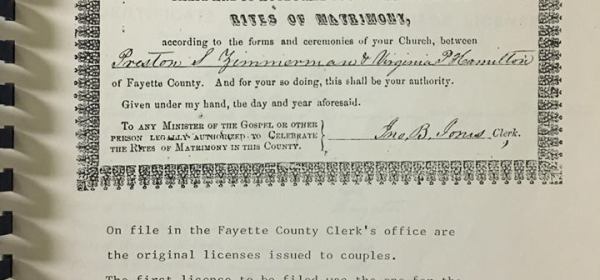 RITES OF MATRIMONY,
according to the forms and ceremonies of your Church, between
Preston S Zimmerman & Virginia P Hamilton
of Fayette County. And for your so doing, this shall be your authority.
Given under my hand, the day and year aforesaid.
TO ANY MINISTER OF THE GOSPEL OR OTHER
PERSON LEGALLY AUTHORIZED TO CELEBRATE
THE RITES OF MATRIMONY IN THIS COUNTY.
Jno. B. Jones Clerk.
On file in the Fayette County Clerk's office are
the original licenses issued to couples.
The first license to be filed was the one for the